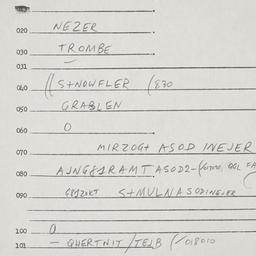 020 NEZER
030 TROMBE
031
040 S+NOWFLER (870
050 GRABLEN
060 O
070 MIRZOG+ ASOD INEJER
080 AJNG81RAMT ASOD2-
090 S+MULNASODINEJER
100 O
101 - QHERTNIT/TEJB (/018010